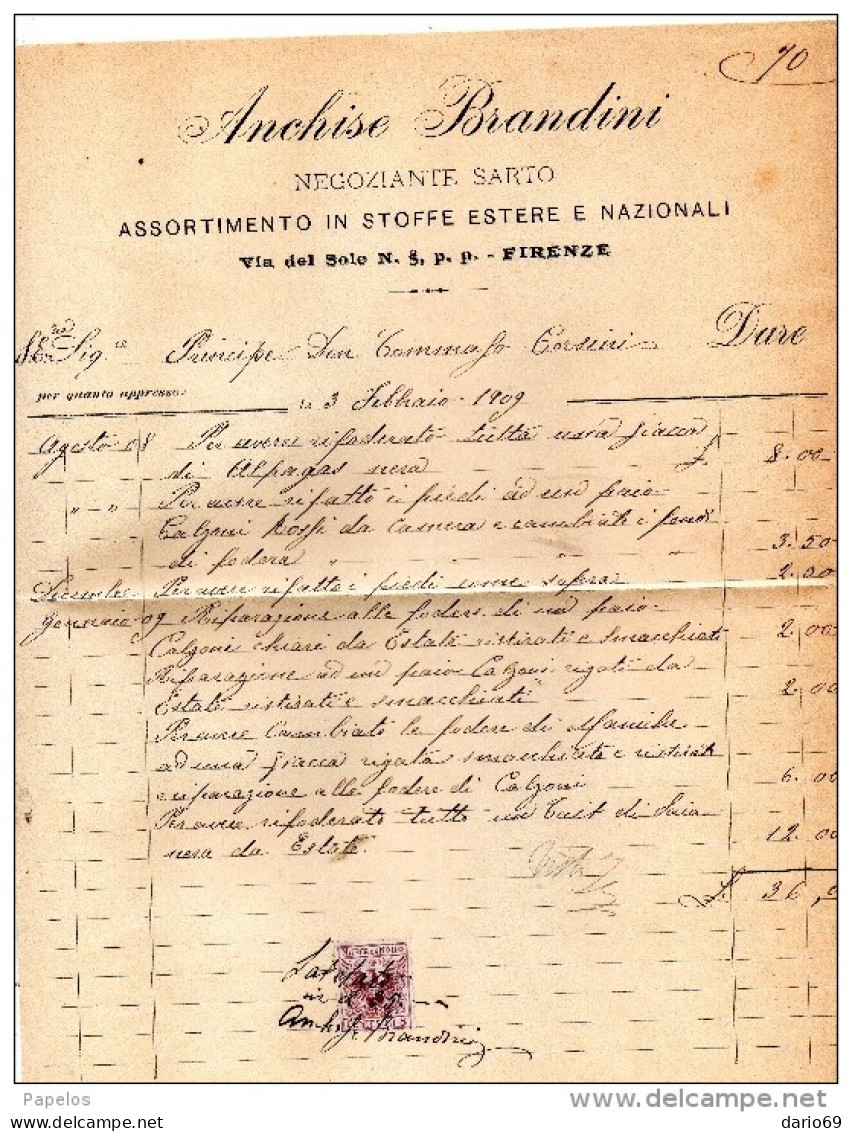 70
Anchise Brandini
NEGOZIANTE SARTO
ASSORTIMENTO IN STOFFE ESTERE E NAZIONALI
Via del Sole N. 8, p. p. - FIRENZE
Sig.re Principe Don Tommaso Corsini Dare
per quanto appresso:
li 3 Febbraio 1909
Agosto 08 Per avere rifoderato tutta una giacca
di Alpagas nera £ 8.00
" - " Per avere rifatto i piedi ad un paio
Calzoni Rossi da Camera e cambiati i fondi
di fodera " " " 3.50
Dicembre Per avere rifatto i piedi come sopra 2.50
Gennaio 09 Riparazione alle fodere di un paio
Calzoni chiari da Estate ristirati e smacchiati 2.00
Riparazione ad un paio Calzoni rigati da
Estate ristirati e smacchiati 2.00
Per avere Cambiato le fodere di Maniche
ad una giacca rigata smacchiata e ristirata
e riparazione alle fodere di Calzoni 6.00
Per avere rifoderato tutto un di Saia
nera da Estate. 12.00
£. 36,0
MARCA DA BOLLO
Anchise Brandini
Papelos
delcampe.net
dario69